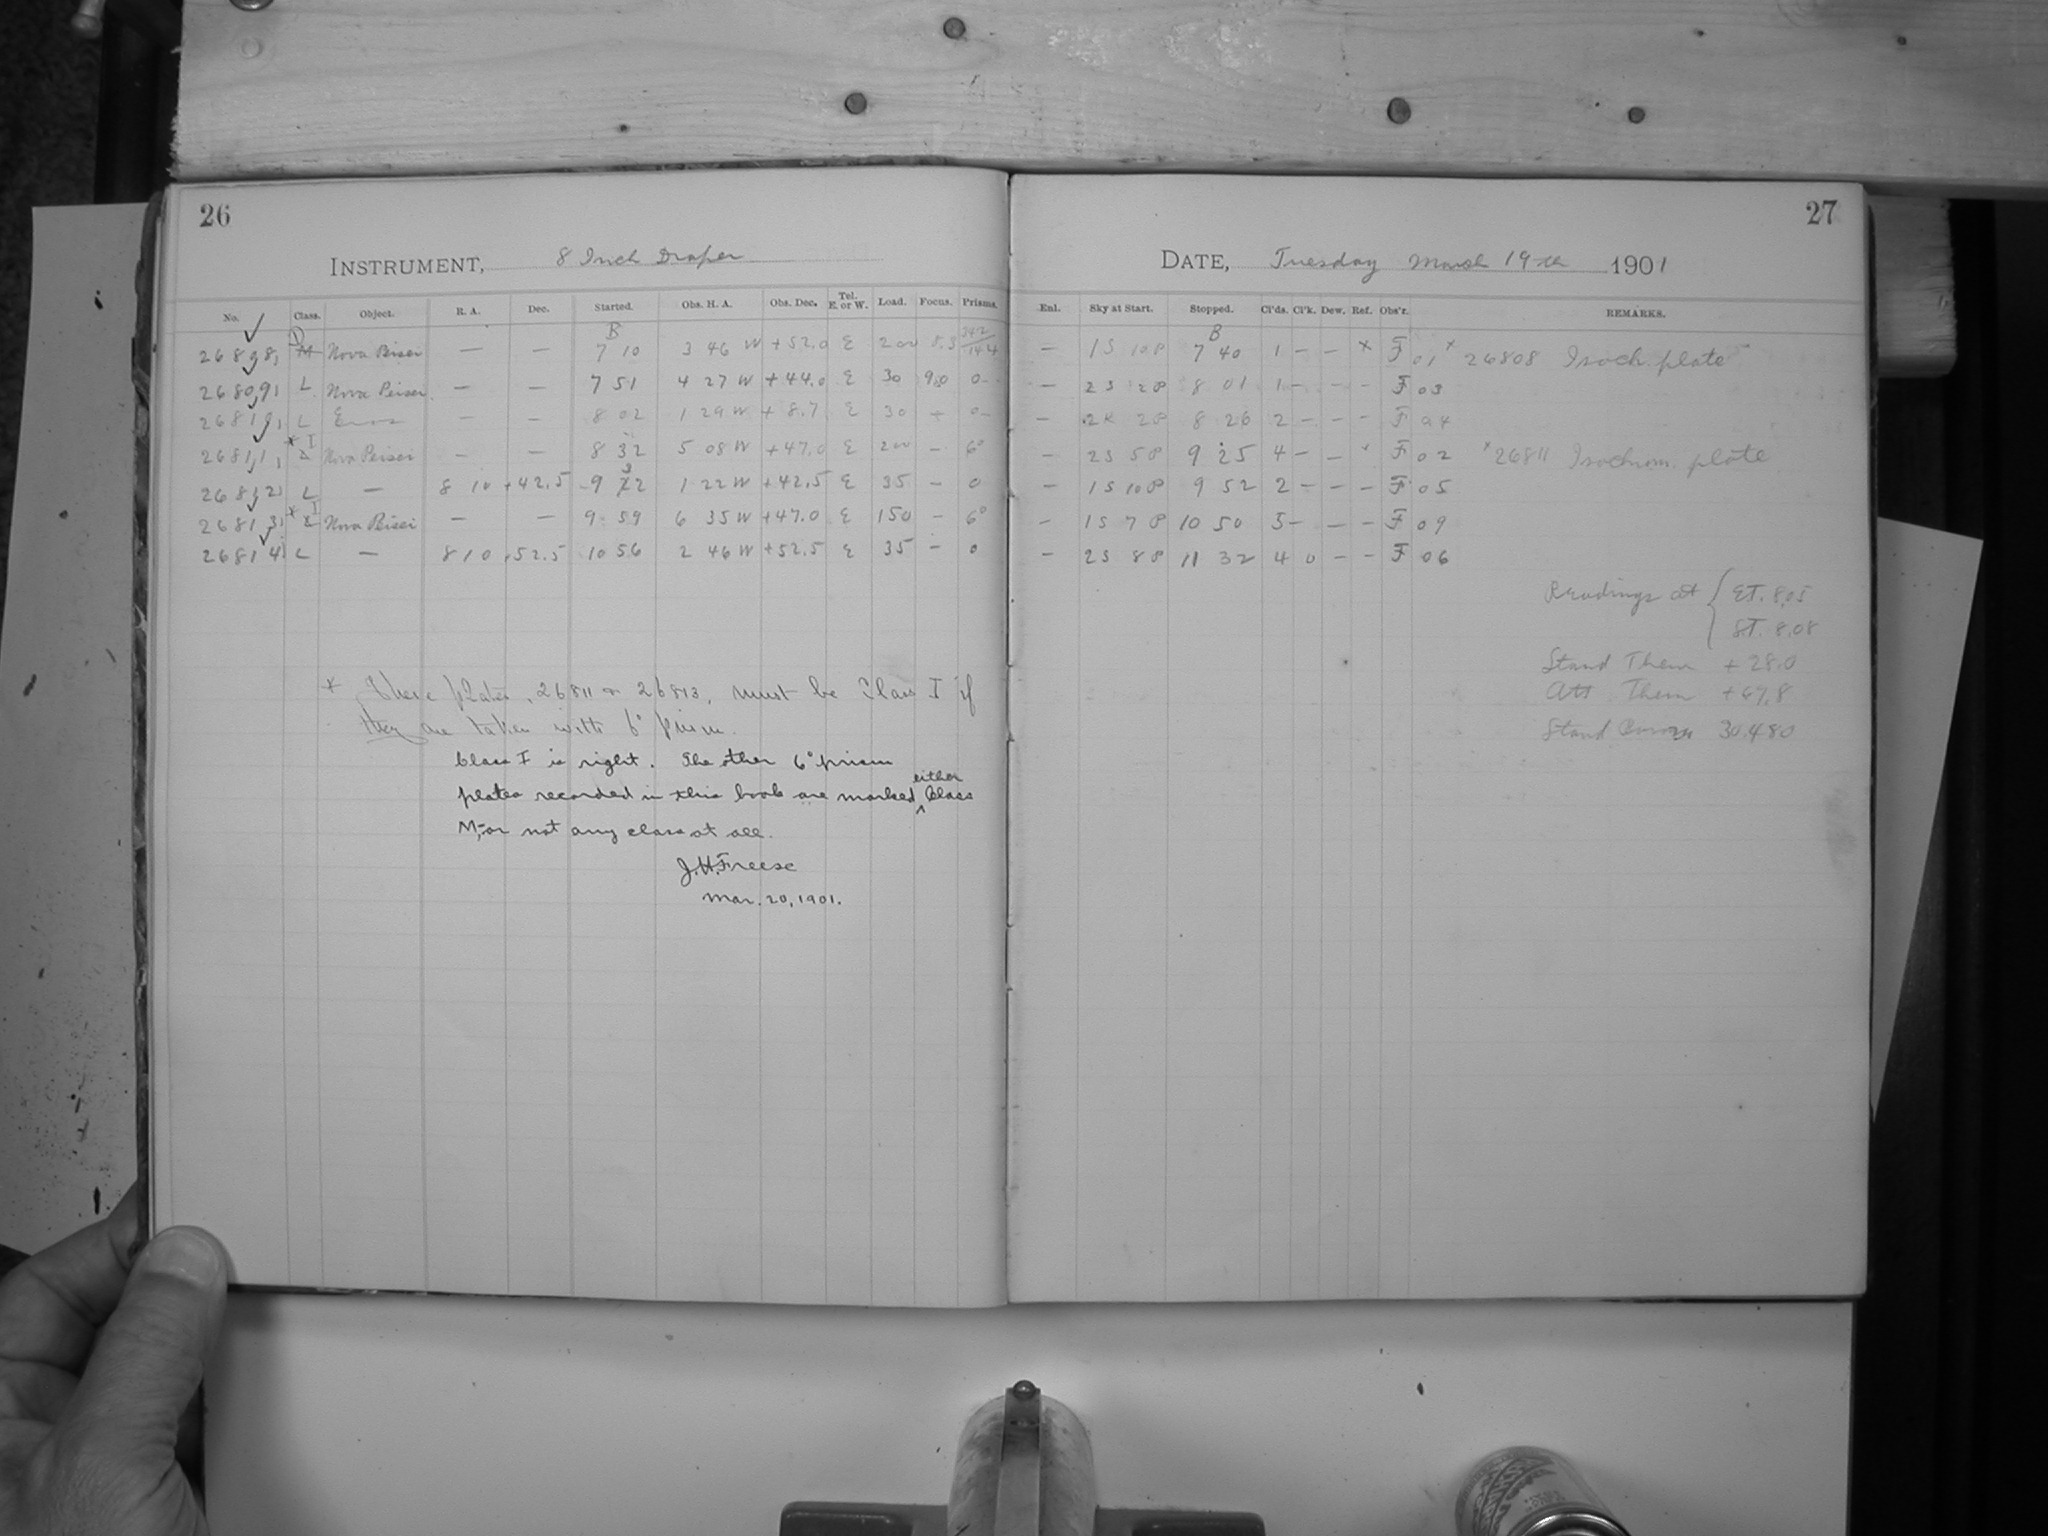 26
INSTRUMENT, 8 Inch Draper
No. Class. Object. R. A. Dec. Started. Obs. H. A. Obs. Dec. Tel. E. or W. Load. Focus. Prisms.
B
26808 D Nova Persei — — 7 10 3 46 W +52.0 E 200 8.3
26809 L Nova Persei — — 7 51 4 27 W +44.0 E 30 9.0 0
26810 L Eros — — 8 02 1 29 W + 8.7 E 30 — 0
26811 * I Nova Persei — — 8 32 5 08 W +47.0 E 200 — 6°
26812 L — 8 10 +42.5 9 32 1 22 W +42.5 E 35 — 0
26813 * I Nova Persei — — 9 59 6 35 W +47.0 E 150 — 6°
26814 L — 8 10 +52.5 10 56 2 46 W +52.5 E 35 — 0
* These plates, 26811 & 26813, must be Class I if
they are taken with 6° prism.
Class I is right. The other 6° prism
plates recorded in this book are marked either Class
M, or not any class at all.
J.H. Freese
Mar. 20, 1901.
27
DATE, Tuesday March 19th 1901
Enl. Sky at Start. Stopped. Cl'ds. Cl'k. Dew. Ref. Obs'r. REMARKS.
B
— 1S 10P 7 40 1 — — x F 01 x 26808 Isoch. plate
— 2S 2P 8 01 1 — — — F 03
— 2P 8 26 2 — — — F 04
— 2S 5P 9 25 4 — — x F 02 x 26811 Isochrom. plate
— 1S 10P 9 52 2 — — — F 05
— 1S 7P 10 50 5 — — — F 09
— 2S 8P 11 32 4 0 — — F 06
Readings at { ET. 8.05
ST. 8.08
Stand Therm + 28.0
Att Therm + 67.8
Stand 30.480